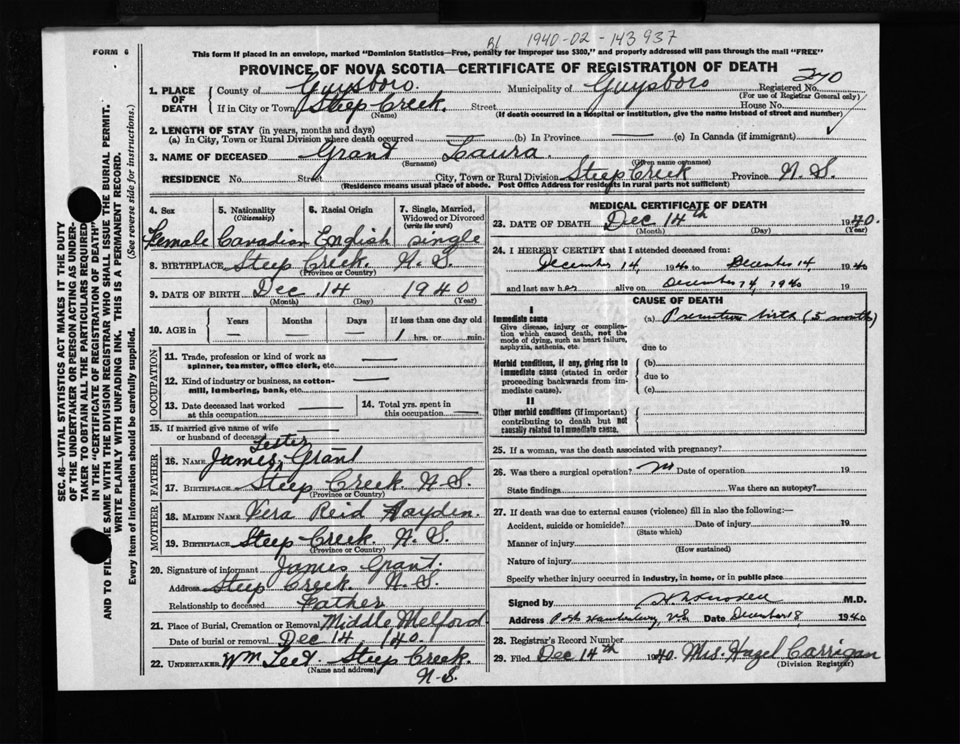 1940-02-143937
FORM 6
This form if placed in an envelope, marked "Dominion Statistics—Free, penalty for improper use $300," and properly addressed will pass through the mail "FREE"
PROVINCE OF NOVA SCOTIA—CERTIFICATE OF REGISTRATION OF DEATH
270
1. PLACE OF DEATH
County of Guysboro. Municipality of Guysboro Registered No.
(For use of Registrar General only)
If in City or Town Steep Creek. Street House No.
(Name) (If death occurred in a hospital or institution, give the name instead of street and number)
2. LENGTH OF STAY (in years, months and days)
(a) In City, Town or Rural Division where death occurred (b) In Province (c) In Canada (if immigrant)
3. NAME OF DECEASED Grant Laura.
(Surname) (Given name or names)
RESIDENCE No. Street City, Town or Rural Division Steep Creek Province N. S.
(Residence means usual place of abode. Post Office Address for residents in rural parts not sufficient)
4. Sex
Female
5. Nationality
(Citizenship)
Canadian
6. Racial Origin
English
7. Single, Married, Widowed or Divorced
(write the word)
single
8. BIRTHPLACE Steep Creek. N. S.
(Province or Country)
9. DATE OF BIRTH Dec 14 1940
(Month) (Day) (Year)
10. AGE in Years Months Days If less than one day old
1 hrs. or min.
OCCUPATION
11. Trade, profession or kind of work as spinner, teamster, office clerk, etc.
12. Kind of industry or business, as cotton-mill, lumbering, bank, etc.
13. Date deceased last worked at this occupation
14. Total yrs. spent in this occupation
15. If married give name of wife or husband of deceased
FATHER
16. NAME James Lester Grant
17. BIRTHPLACE Steep Creek N. S.
(Province or Country)
MOTHER
18. MAIDEN NAME Vera Reid Hayden.
19. BIRTHPLACE Steep Creek. N. S.
(Province or Country)
20. Signature of informant James Grant.
Address Steep Creek. N. S.
Relationship to deceased Father
21. Place of Burial, Cremation or Removal Middle Melford
Date of burial or removal Dec 14. 140.
22. UNDERTAKER Wm Steep Creek.
(Name and address)
N-S.
MEDICAL CERTIFICATE OF DEATH
23. DATE OF DEATH Dec 14th 1940.
(Month) (Day) (Year)
24. I HEREBY CERTIFY that I attended deceased from:
December 14, 1940 to December 14 1940
and last saw her alive on December 14, 1940 19
CAUSE OF DEATH
I
Immediate cause
Give disease, injury or complication which caused death, not the mode of dying, such as heart failure, asphyxia, asthenia, etc.
(a) Premature birth (5 months)
due to
Morbid conditions, if any, giving rise to immediate cause (stated in order proceeding backwards from immediate cause).
(b)
due to
(c)
II
Other morbid conditions (if important) contributing to death but not causally related to immediate cause.
25. If a woman, was the death associated with pregnancy?
26. Was there a surgical operation? no Date of operation 19
State findings Was there an autopsy?
27. If death was due to external causes (violence) fill in also the following:—
Accident, suicide or homicide? Date of injury 19
(State which)
Manner of injury
(How sustained)
Nature of injury
Specify whether injury occurred in industry, in home, or in public place
Signed by M.D.
Address Date December 18, 1940
28. Registrar's Record Number
29. Filed Dec 14th 1940. Mrs. Hazel Carrigan
(Division Registrar)
SEC. 46—VITAL STATISTICS ACT MAKES IT THE DUTY
OF THE UNDERTAKER OR PERSON ACTING AS UNDER-
TAKER TO OBTAIN ALL THE PARTICULARS REQUIRED
IN THE "CERTIFICATE OF REGISTRATION OF DEATH"
AND TO FILE SAME WITH THE DIVISION REGISTRAR WHO SHALL ISSUE THE BURIAL PERMIT.
WRITE PLAINLY WITH UNFADING INK. THIS IS A PERMANENT RECORD.
Every item of information should be carefully supplied. (See reverse side for instructions.)